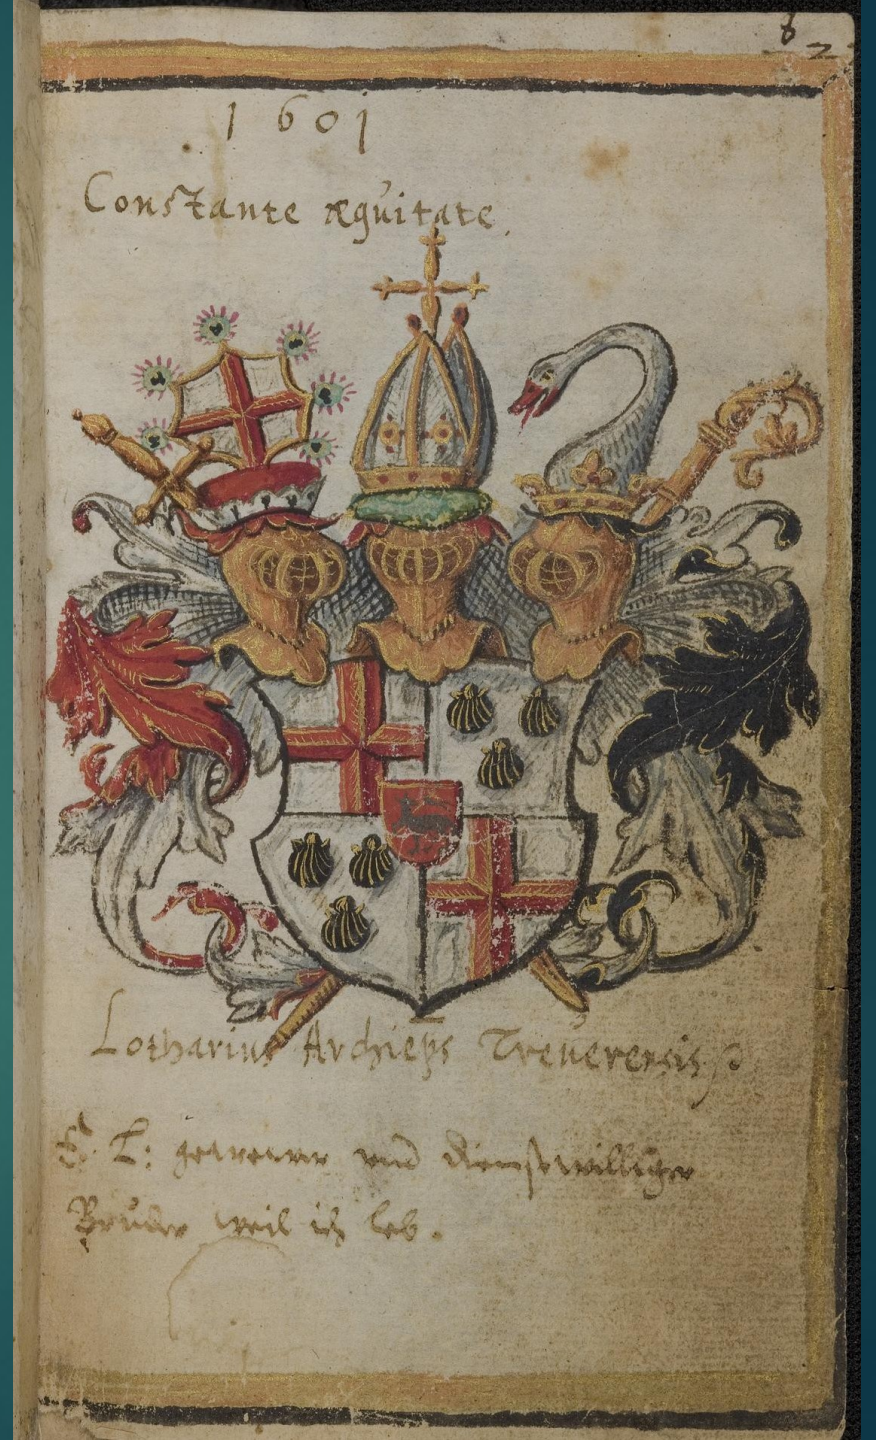 62
1601
Constante æquitate.
Lotharius Archieps Treverensis
E. L: getrewer und dienstwilliger
Bruder weil ich leb.